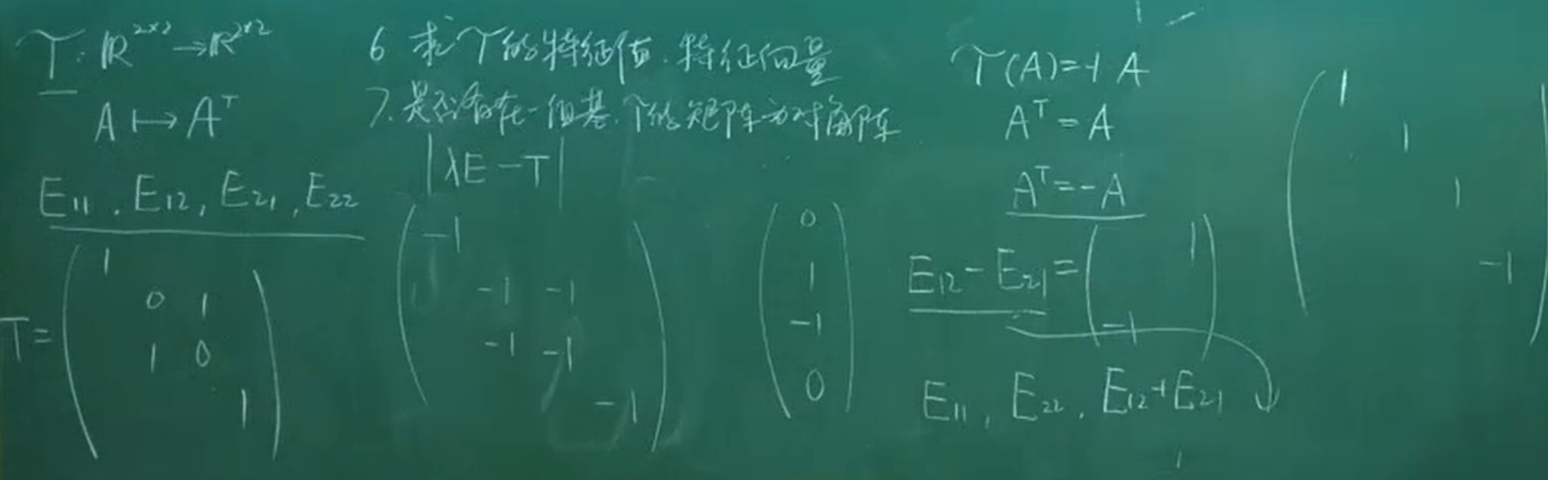 T: ℝ²ˣ² → ℝ²ˣ²
A ↦ Aᵀ
E₁₁, E₁₂, E₂₁, E₂₂
T =
1
0 1
1 0
1
6 求T的特征值.特征向量
7.是否存在一组基.T的矩阵为对角阵
|λE - T|
-1
-1 -1
-1 -1
-1
0
1
-1
0
T(A)=-1 A
Aᵀ = A
Aᵀ = -A
E₁₂ - E₂₁ =
1
-1
E₁₁, E₂₂, E₁₂+E₂₁
1
1
1
-1